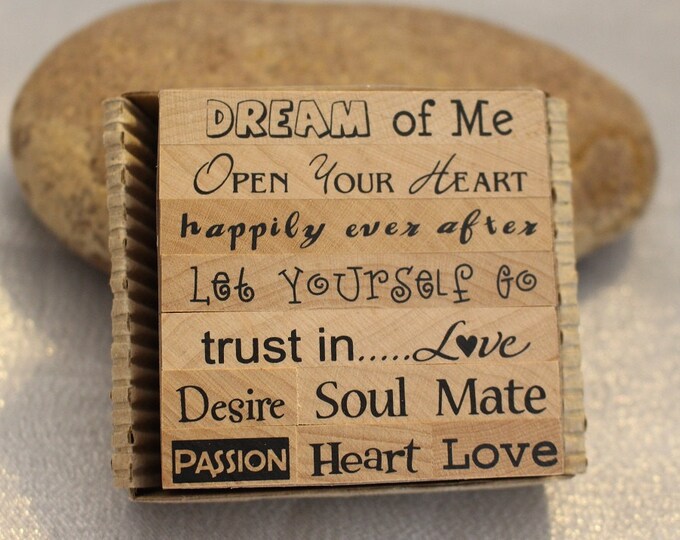 DREAM of Me
OPEN YOUR HEART
happily ever after
Let Yourself Go
trust in.....Love
Desire Soul Mate
PASSION Heart Love